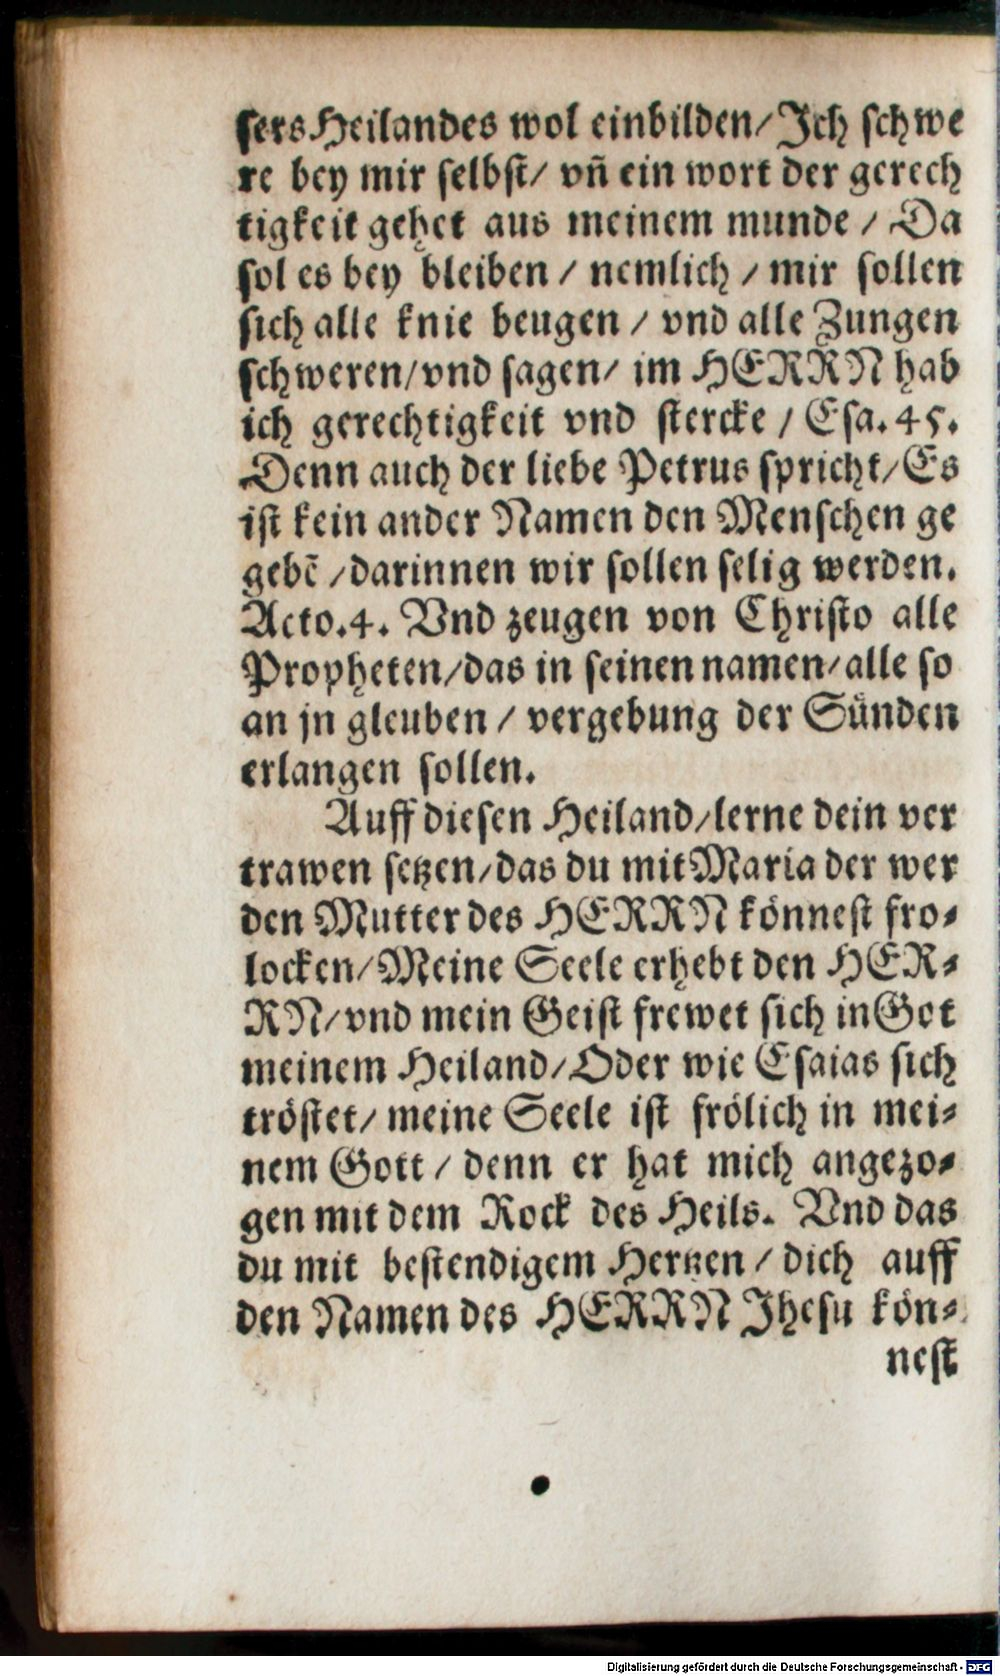 sers Heilandes wol einbilden/ Ich schwe
re bey mir selbst/ vn̄ ein wort der gerech
tigkeit gehet aus meinem munde / Da
sol es bey bleiben / nemlich / mir sollen
sich alle knie beugen / vnd alle Zungen
schweren/vnd sagen/ im HERRN hab
ich gerechtigkeit vnd stercke / Esa. 45.
Denn auch der liebe Petrus spricht/Es
ist kein ander Namen den Menschen ge
gebē /darinnen wir sollen selig werden.
Acto.4. Vnd zeugen von Christo alle
Propheten/das in seinen namen/alle so
an jn gleuben / vergebung der Sünden
erlangen sollen.
Auff diesen Heiland/lerne dein ver
trawen setzen/das du mit Maria der wer
den Mutter des HERRN könnest fro⸗
locken/Meine Seele erhebt den HER⸗
RN/vnd mein Geist frewet sich in Got
meinem Heiland/Oder wie Esaias sich
tröstet/ meine Seele ist frölich in mei⸗
nem Gott / denn er hat mich angezo⸗
gen mit dem Rock des Heils. Vnd das
du mit bestendigem Hertzen / dich auff
den Namen des HERRN Jhesu kön⸗
nest
Digitalisierung gefördert durch die Deutsche Forschungsgemeinschaft - DFG